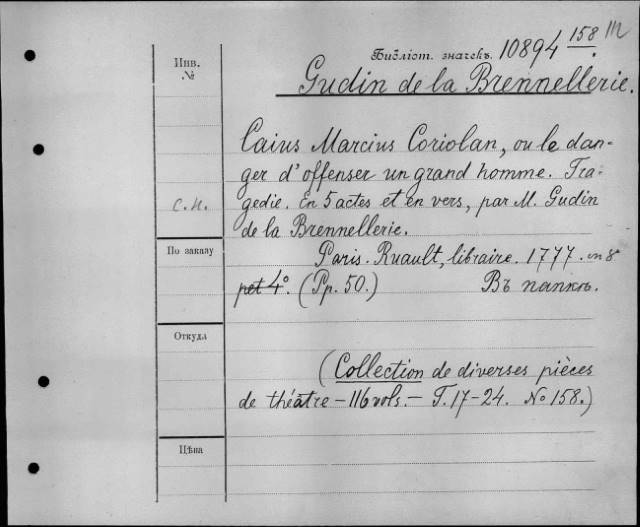 Инв.
№
Библіот. значекъ. 10894 158
Gudin de la Brennellerie.
Caius Marcius Coriolan, ou le dan-
ger d'offenser un grand homme. Tra-
gedie. En 5 actes et en vers, par M. Gudin
с.н.
de la Brennellerie.
По заказу
Paris. Ruault, libraire. 1777. in 8°
pet 4°. (Pp. 50.) Въ папкѣ.
Откуда
(Collection de diverses pièces
de théâtre – 116 vols. – T. 17–24. No 158.)
Цѣна